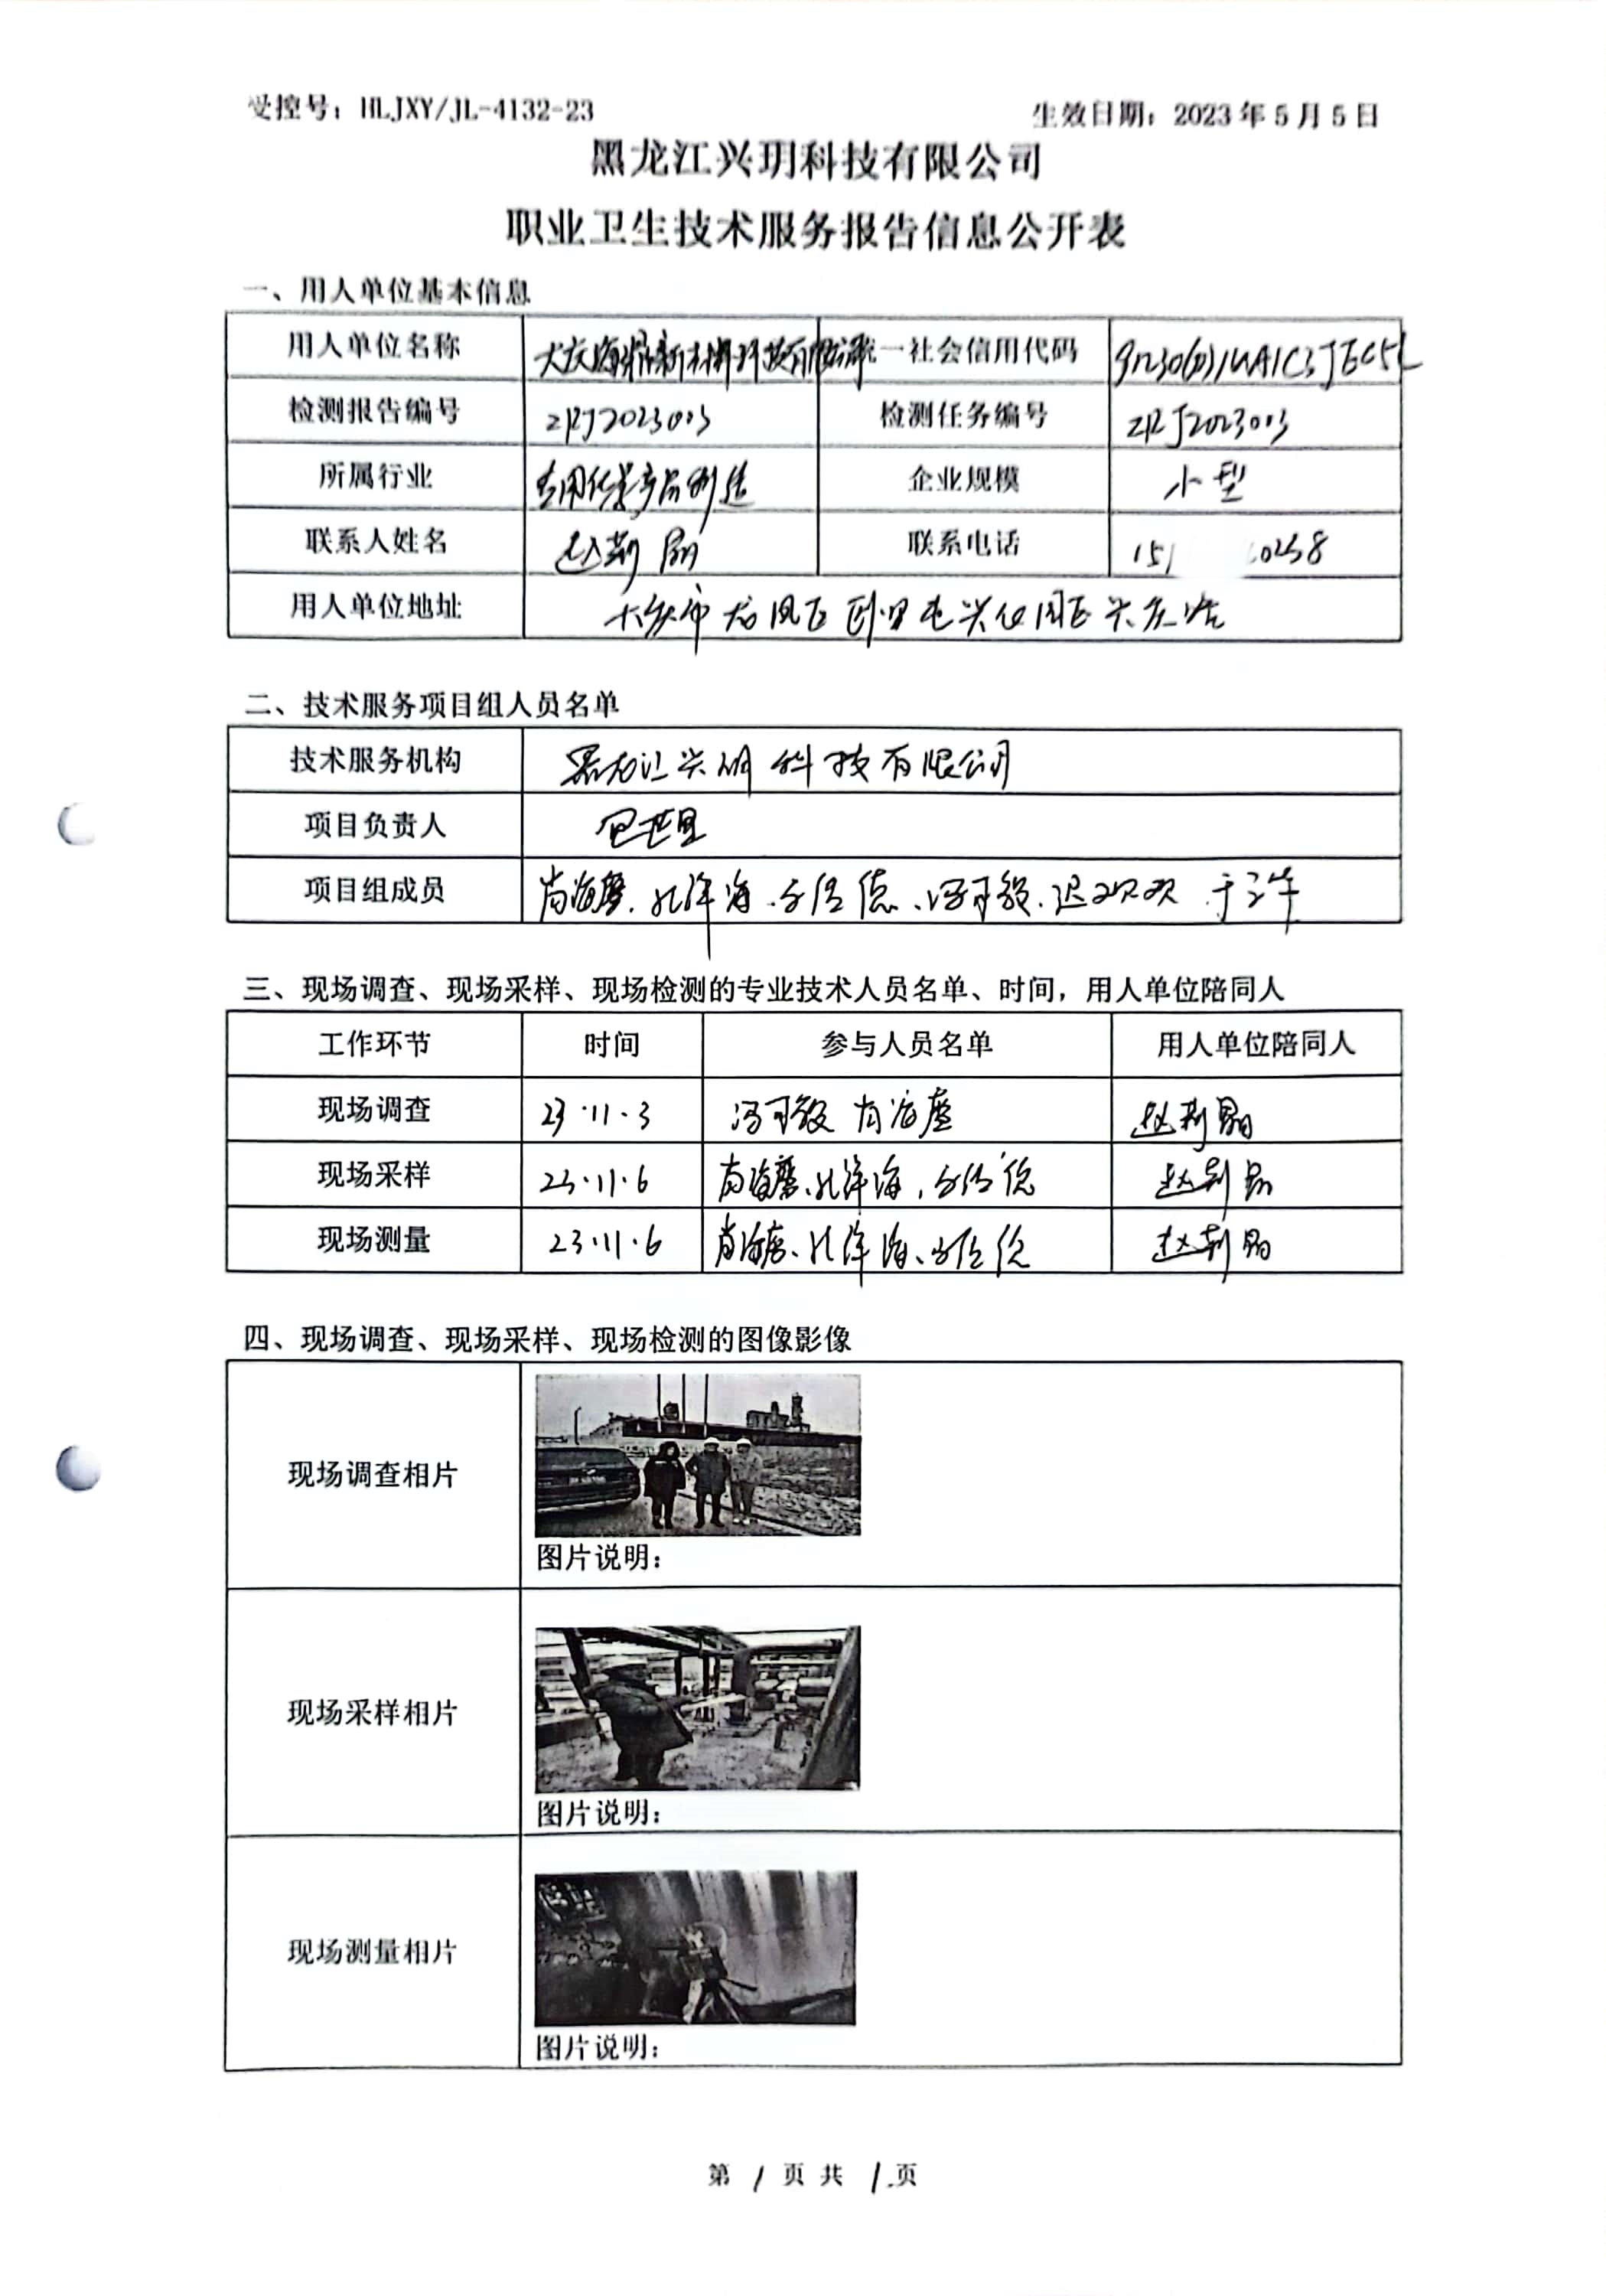 受控号：HLJXY/JL-4132-23 生效日期：2023年5月5日
黑龙江兴玥科技有限公司
职业卫生技术服务报告信息公开表
一、用人单位基本信息
用人单位名称 大庆海鼎新材料科技有限公司 统一社会信用代码
检测报告编号 ZPJ2023003 检测任务编号 ZPJ2023003
所属行业 专用化学产品制造 企业规模 小型
联系人姓名 联系电话 151 0258
用人单位地址 大庆市龙凤区
二、技术服务项目组人员名单
技术服务机构 黑龙江兴玥科技有限公司
项目负责人
项目组成员 孔洋海 冯可毅、迟欢欢
三、现场调查、现场采样、现场检测的专业技术人员名单、时间，用人单位陪同人
工作环节 时间 参与人员名单 用人单位陪同人
现场调查 23.11.3 冯可毅
现场采样 23.11.6 孔洋海
现场测量 23.11.6 孔洋海
四、现场调查、现场采样、现场检测的图像影像
现场调查相片
图片说明：
现场采样相片
图片说明：
现场测量相片
图片说明：
第 1 页共 1 页